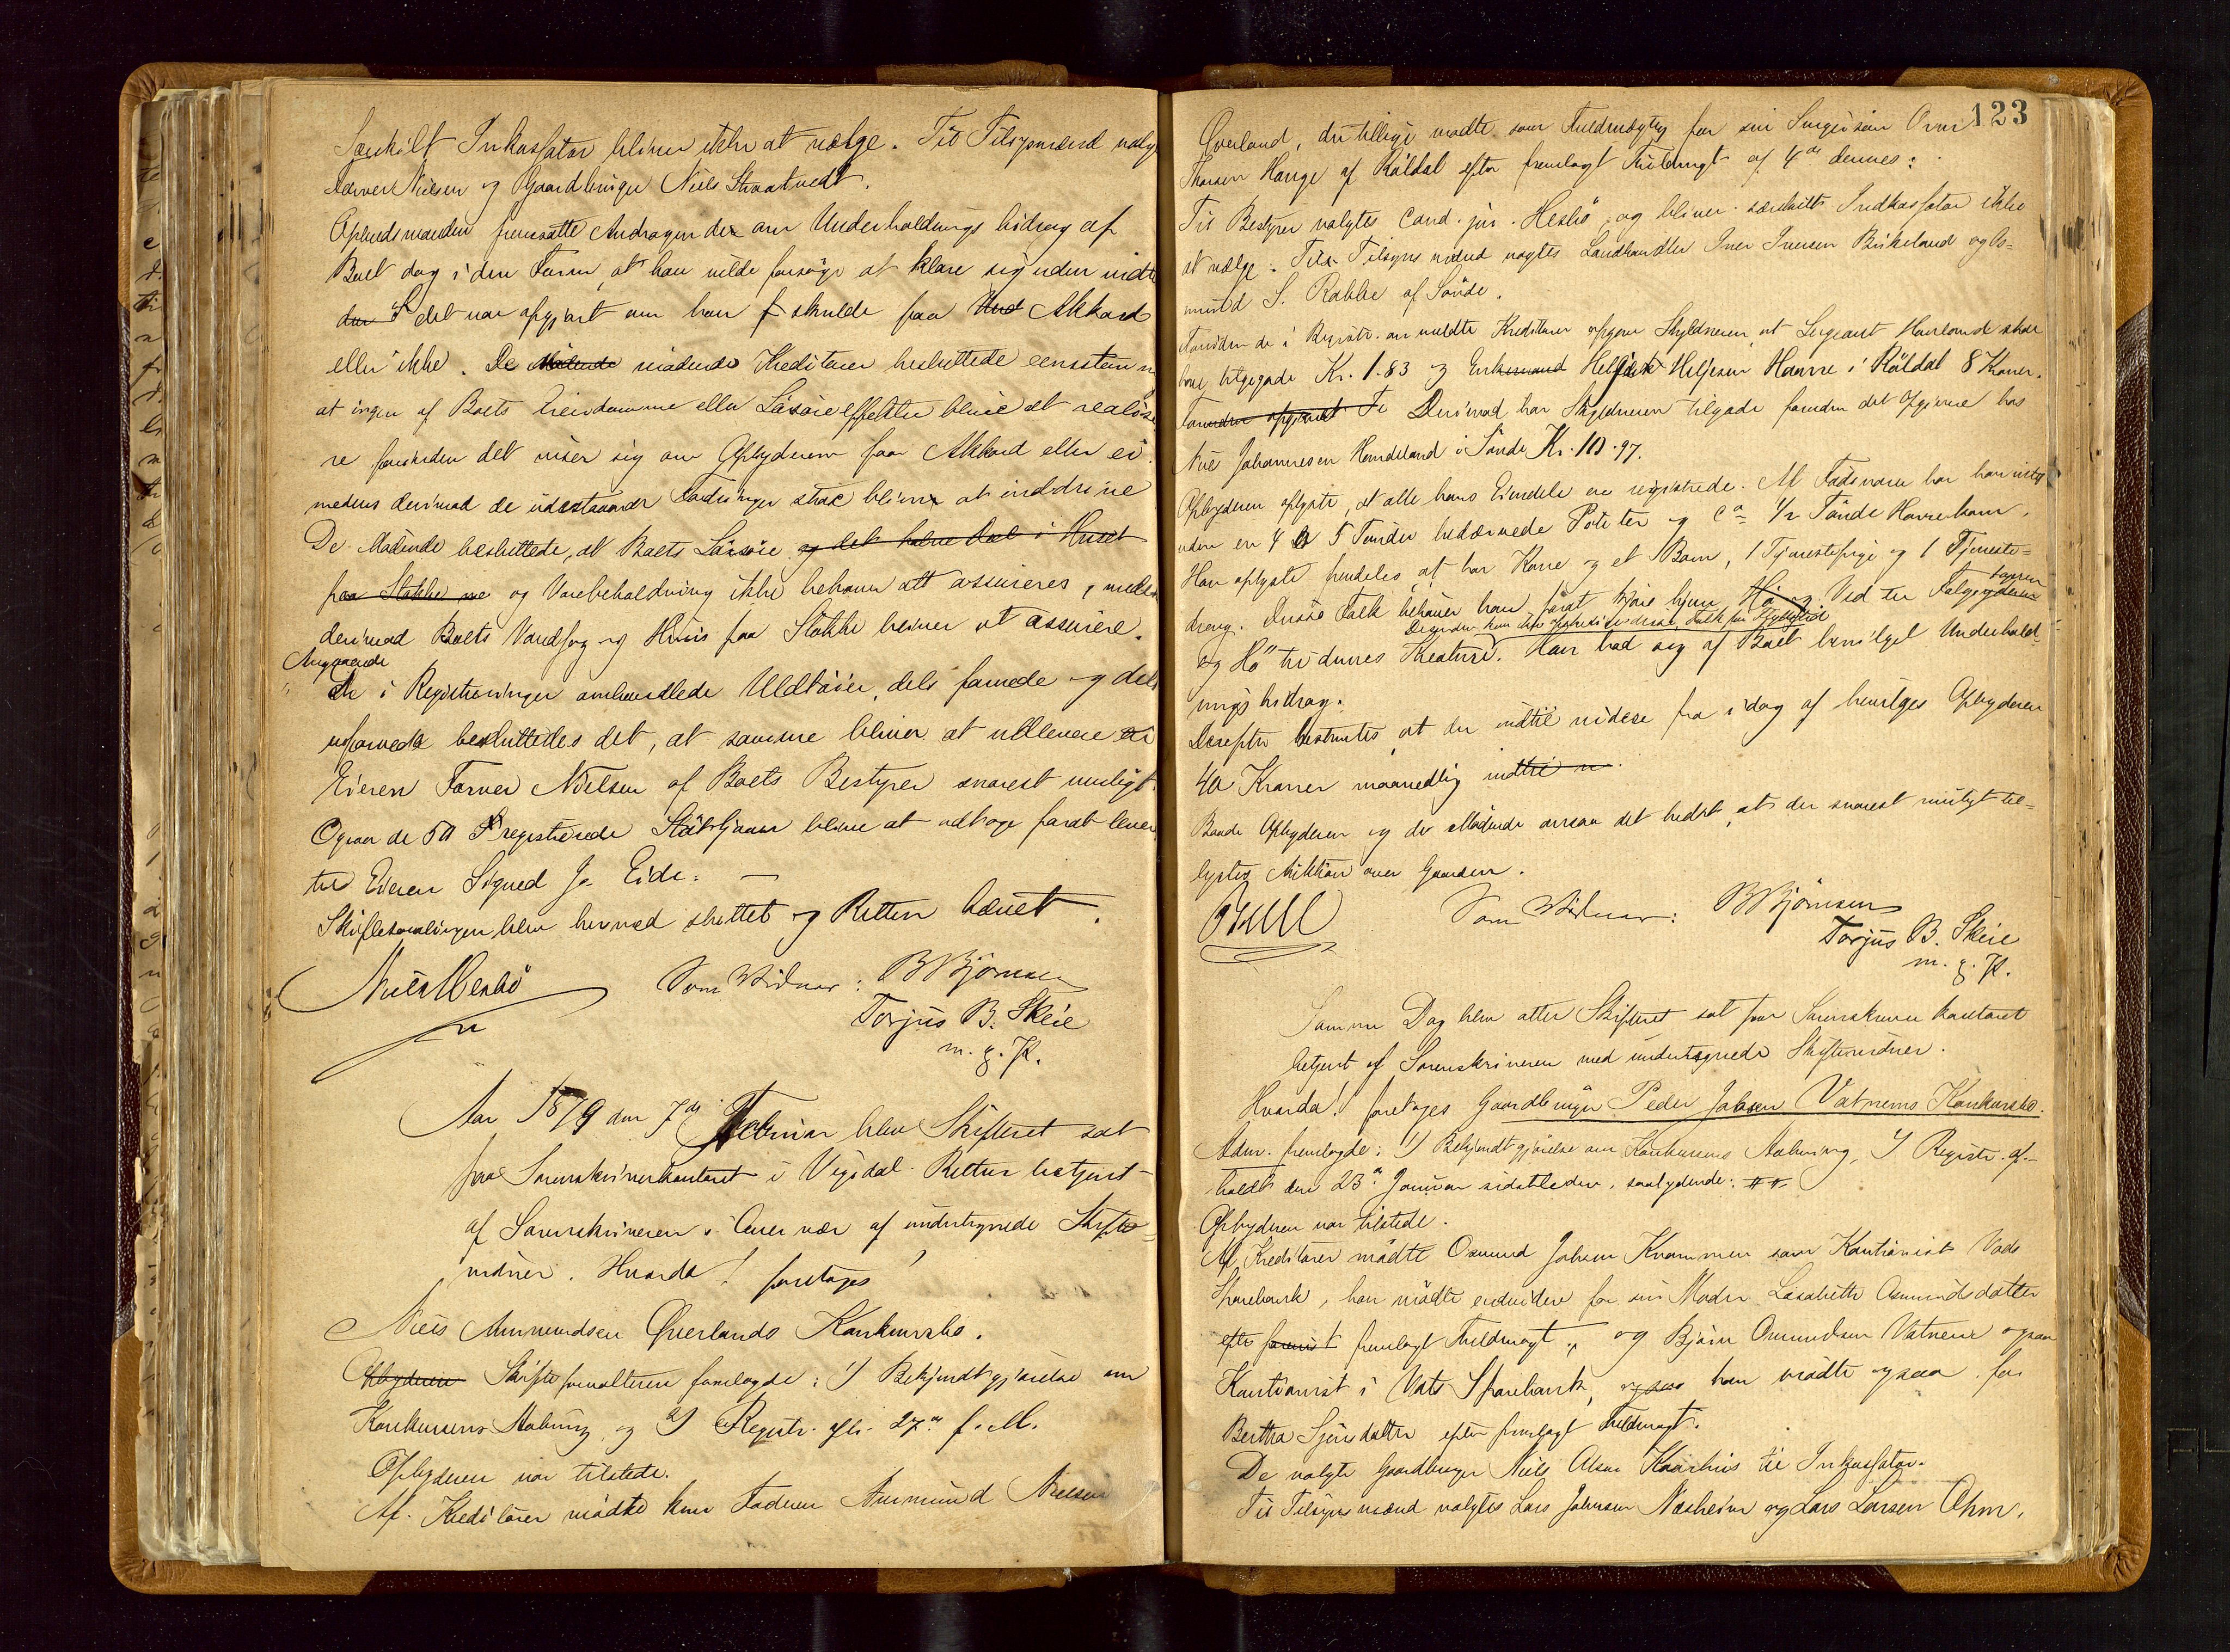 Særskilt Inkassator bliver ikke at vælge. Til Tilsynsmænd valg
Farver Nielsen og Gaardbruger Niels Straatvedt.
Opbudsmanden fremsatte Andragende om Underholdnings bidrag af
Boet dog i den Form, at han vilde forsøge at klare sig uden indtil
det var afgjort om han skulde faa Akkord
eller ikke. De mødende Kreditorer besluttede eensstem
at ingen af Boets Eiendomme eller Løsøreeffekter bliver at realise
re forinden det viser sig om Opbyderen faar Akkord eller ei.
medens derimod de udestaaende Fordringer strax bliver at inddrive
De Mødende besluttede, at Boets Løsøre og det halve Hus i Huset
paa Stokke og Varebeholdning ikke behøver at assureres, medens
derimod Boets Vandsag og Huus paa Stokke bliver at assurere.
Angaaende
de i Registreringen omhandlede Uldtøier, dels farvede og dels
ufarvede besluttedes det, at samme bliver at udlevere
Eieren Farver Nielsen af Boets Bestyrer snarest muligt.
Ogsaa de 50 registrerede bliver at udtage for at lever
til Eieren Sigved J. Eide. —
Skiftesamlingen blev hermed sluttet og Retten hævet.
Niels Hesbø Som Vidner: B Bjørnsen
Torjus B. Skeie
m. g. P.
Aar 1879 den 7de Februar blev Skifteret sat
paa Sorenskriverkontoret i Vigsdal. Retten betjent
af Sorenskriveren i Overvær af undertegnede Skifte-
vidner. Hvorda! foretages
Niels Ammundsen Qverlands Konkursbo.
Opbyderen Skifteforvalteren fremlagde: 1) Bekjendtgjørelse om
Konkursens Aabning og 2) Registr. afh. 27de f. M.
Opbyderen var tilstede.
Af Kreditorer mødte kun Faderen Ammund Nielsen
123
Qverland, der tillige mødte som Fuldmægtig for sin
Thorsen Hauge af Røldal efter fremlagt Fuldmagt af 4de dennes:
Til Bestyrer valgtes Cand. jur. Hesbø og bliver særskilt Indkassator ikke
at vælge. Til Tilsynsmænd valgtes Landhandler Iver Iversen Birkeland og Os-
mund S. Rabbe af Søvde.
Foruden de i Registr. anmeldte Kreditorer opgav Skyldneren at Sergeant Havland skal
have tilgode Kr. 1.83 og Enkemand Helje Heljesen Havre i Røldal 8 Kroner.
Derimod har Skyldneren tilgode foruden det Opgivne hos
Nils Johannesen Hundeland i Søvde Kr. 10.97.
Opbyderen oplyste, at alle hans Eiendele er registrerede. Af Fødevarer har han intet
uden en 4 a 5 Tønder bedærvede Poteter og Ca 1/2 Tønde Havrekorn.
Han oplyste fremdeles, at har Kone og et Barn, 1 Tjenestepige og 1 Tjeneste-
dreng. Disse Folk behøver han for at kjøre hjem Hø og Ved
og Hø til dennes Kreaturer. Han bad sig af Boet bevilget Underhold-
ningsbidrag.
Derefter bestemtes at der indtil videre fra idag af bevilges Opbyderen
40 Kroner maanedlig indtil
Baade Opbyderen og de Mødende ansaa det bedst, at der snarest muligt til-
lystes Auktion over Gaarden.
Som Vidner: B Bjørnsen
Torjus B. Skeie
m. g. P.
Samme Dag blev atter Skifteret sat paa Sorenskriverkontoret
betjent af Sorenskriveren med undertegnede Skiftevidner.
Hvorda! foretages Gaardbruger Peder Jobsen Vatnems Konkursbo.
Adm. fremlagde: 1) Bekjendtgjørelse om Konkursens Aabning, 2) Registr. af-
holdt den 23de Januar sidstleden, saalydende:
Opbyderen var tilstede.
Af Kreditorer mødte Osmund Johnsen Knarmmen som Kautionist Vats
Sparebank, han mødte endvidere for sin Moder Lisabeth Osmundsdatter
efter fremlagt Fuldmagt, og Bjørn Omundsen Vatnem ogsaa
Kautionist i Vats Sparebank, han mødte ogsaa for
Bertha Sjursdatter efter fremlagt Fuldmagt.
De valgte Gaardbruger Niels Olsen Kaarhus til Inkassator.
Til Tilsynsmænd valgtes Lars Johnsen Næsheim og Lars Larsen Ohm.